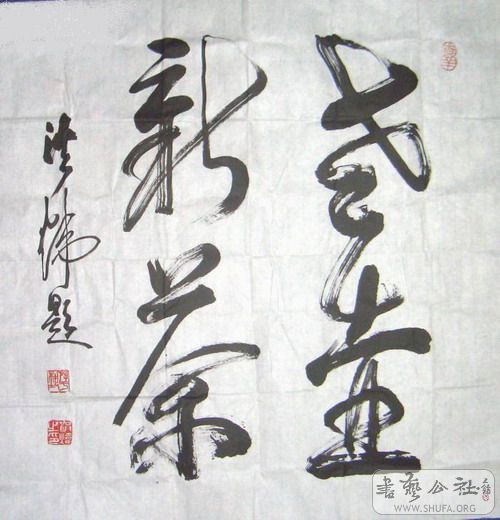 老壶
新茶
题
書藝公社
WWW.SHUFA.ORG